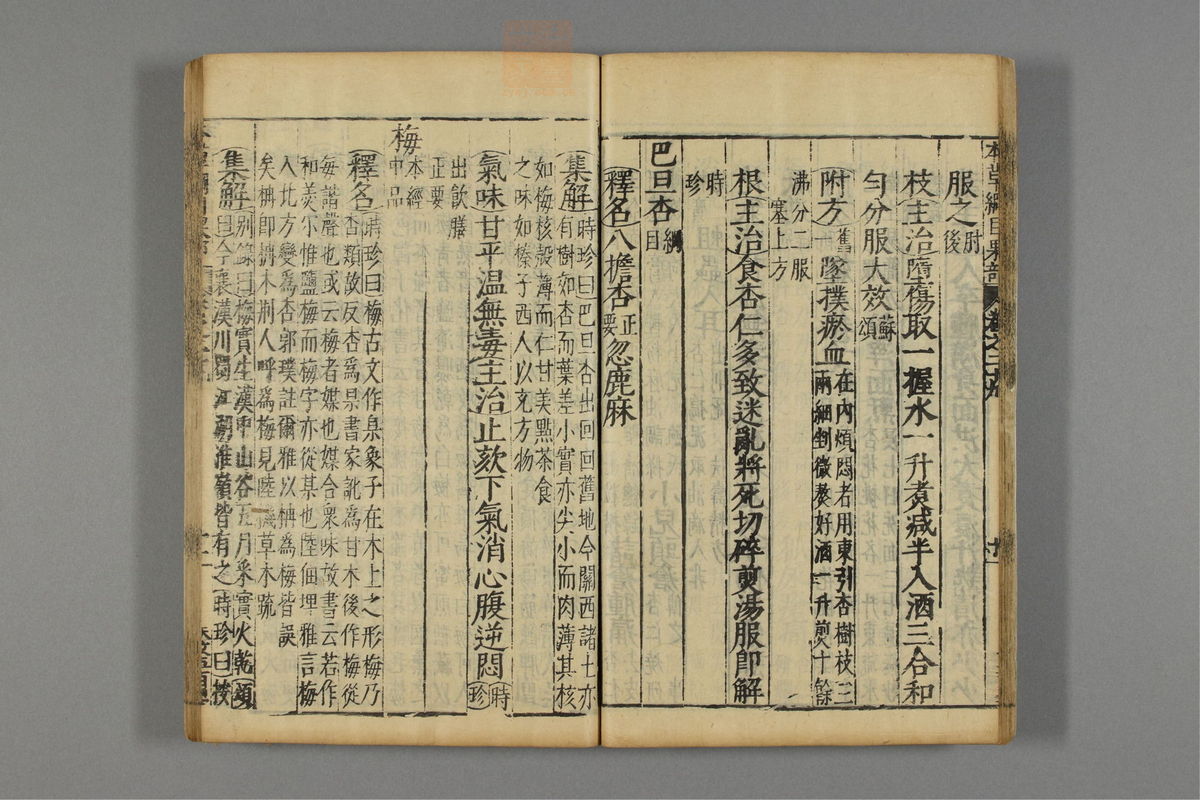 服之肘後
枝主治墮傷取一握水一升煮减半入酒三合和
勻分服大效蘇頌
附方舊一墜撲瘀血在内煩悶者用東引杏樹枝三
兩細剉微熬好酒一升煎十餘
沸分二服
塞上方
根主治食杏仁多致迷亂將死切碎煎湯服即解
時珍
巴旦杏綱目
釋名八擔杏正要忽鹿麻
集解時珍曰巴旦杏出回回舊地今關西諸土亦
有樹如杏而葉差小實亦尖小而肉薄其核
如梅核殼薄而仁甘美點茶食
之味如榛子西人以充方物
氣味甘平温無毒主治止欬下氣消心腹逆悶時珍
出飲膳
正要
梅
本經
中品
釋名時珍曰梅古文作呆象子在木上之形梅乃
杏類故反杏爲呆書家訛爲甘木後作梅從
每諧聲也或云梅者媒也媒合衆味故書云若作
和羹爾惟鹽梅而梅字亦從某也陸佃埤雅言梅
入北方變爲杏郭璞註爾雅以柟爲梅皆誤
矣柟即柟木荆人呼爲梅見陸機草木疏
集解别錄曰梅實生漢中山谷五月采實火乾頌
曰今襄漢川蜀江湖淮嶺皆有之時珍曰按